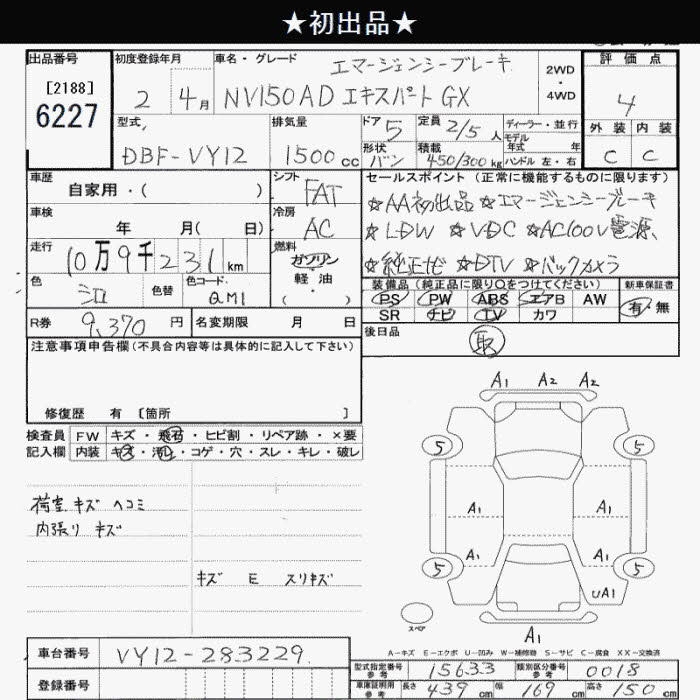 ★初出品★
出品番号
[2188]
6227
初度登録年月
2 4月
車名・グレード
エマージェンシーブレーキ
NV150AD エキスパート GX
2WD
・
4WD
評価点
4
外装 内装
C C
型式
DBF-VY12
排気量
1500cc
ドア 5
形状 バン
定員 2/5人
積載 450/300kg
ディーラー・並行
モデル
年式 年
ハンドル 左・右
車歴
自家用・( )
シフト
FAT
車検
年 月( 日)
冷房
AC
走行
10万9千231km
燃料
ガソリン
・
軽油
( )
色
シロ
色替
色コード
QM1
R券 9,370円
名変期限 月 日
セールスポイント(正常に機能するものに限ります)
☆AA初出品 ☆エマージェンシーブレーキ
☆LDW ☆VDC ☆AC100V電源、
☆純正ナビ ☆DTV ☆バックカメラ
装備品(純正品に限り○をつけてください)
PS PW ABS エアB AW
SR ナビ TV カワ
新車保証書
有・無
後日品
取
注意事項申告欄(不具合内容等は具体的に記入して下さい)
修復歴 有 [箇所 ]
検査員
記入欄
FW キズ・飛石・ヒビ割・リペア跡・×要
内装 キズ・汚レ・コゲ・穴・スレ・キレ・破レ
荷室 キズ ヘコミ
内張り キズ
キズ E スリキズ
A1 A2 A2
5 5
A1 A1
A1 A1
5 5
UA1
スペア
A1
A－キズ E－エクボ U－凹み W－補修跡 S－サビ C－腐食 XX－交換済
車台番号 VY12-283229
登録番号
型式指定番号
参考
15633
類別区分番号
参考
0018
車庫証明用
参考
長さ 439cm 幅 169cm 高さ 150cm